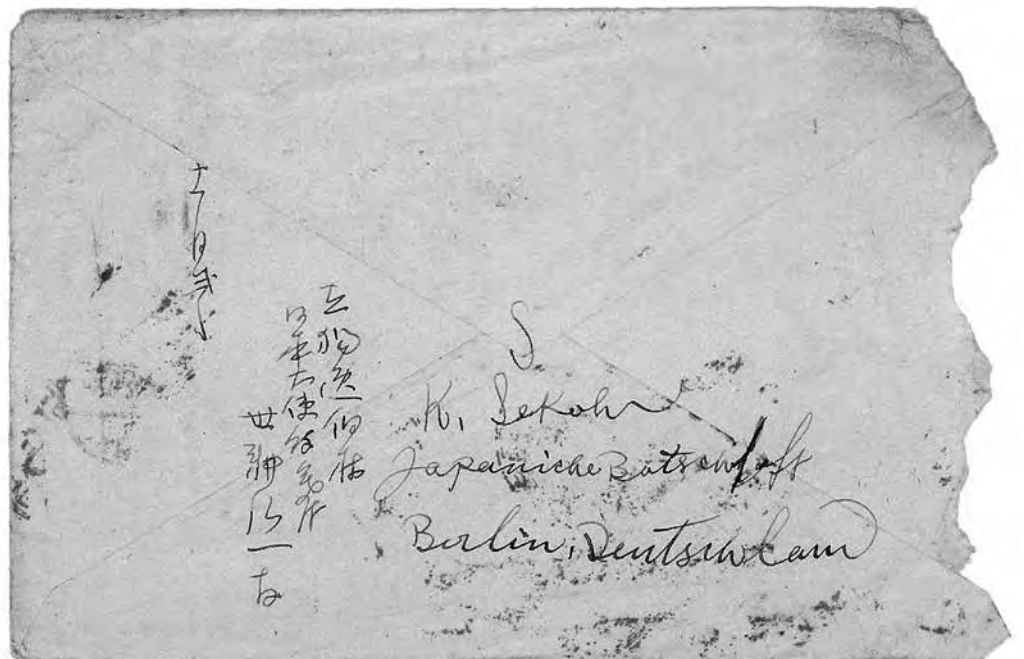 在独逸伯林
日本大使館気付
世耕弘一
S
K, Sekoh
Japaniche Botschaft
Berlin, Deutschland